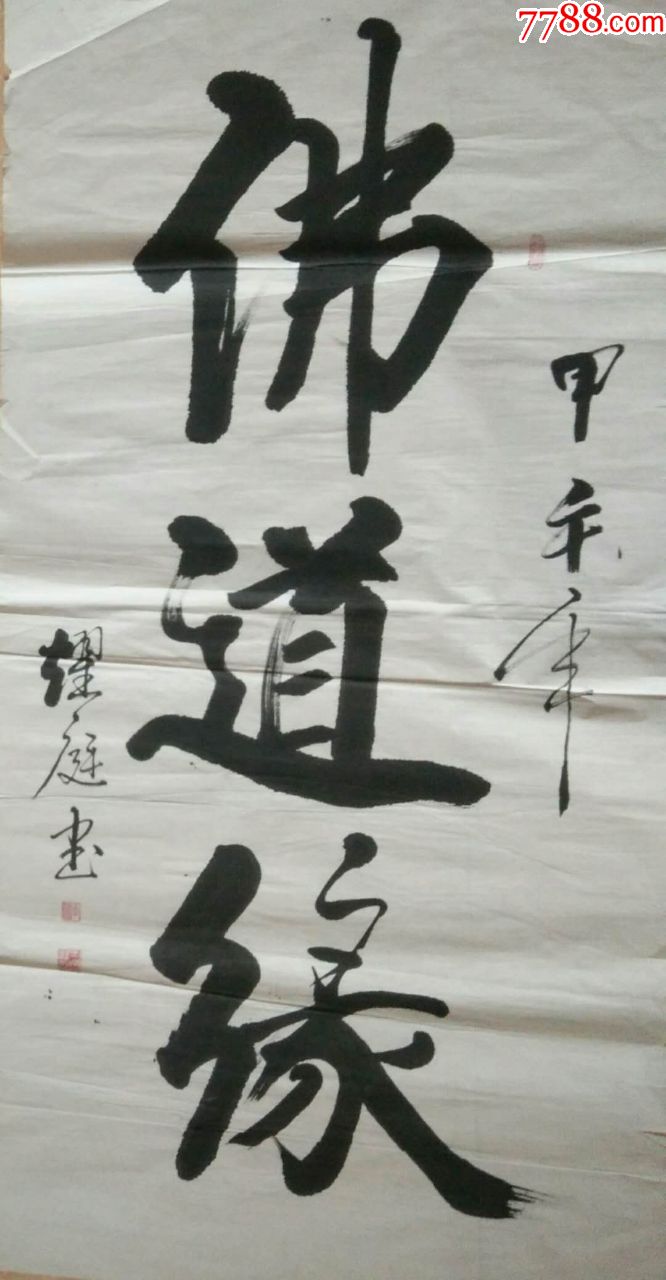 7788.com
甲午年
佛道缘
耀庭书